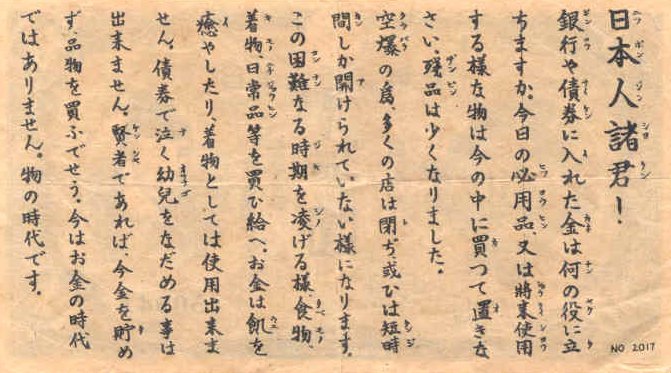 日本人諸君!
銀行や債券に入れた金は何の役に立
ちますか。今日の必用品、又は將来使用
する様な物は今の中に買つて置きな
さい。残品は少くなりました。
空爆の為、多くの店は閉ぢ、或ひは短時
間しか開けられていない様になります。
この困難なる時期を凌げる様食物、
着物、日常品等を買ひ給へ。お金は飢を
癒やしたり、着物としては使用出来ま
せん。債券で泣く幼兒をなだめる事は
出来ません。賢者であれば、今金を貯め
ず品物を買ふでせう。今はお金の時代
ではありません。物の時代です。
NO 2017